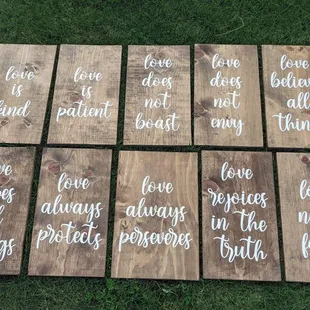 love
is
kind
love
is
patient
love
does
not
boast
love
does
not
envy
love
all
love
always
protects
love
always
perseveres
love
rejoices
in the
truth
love